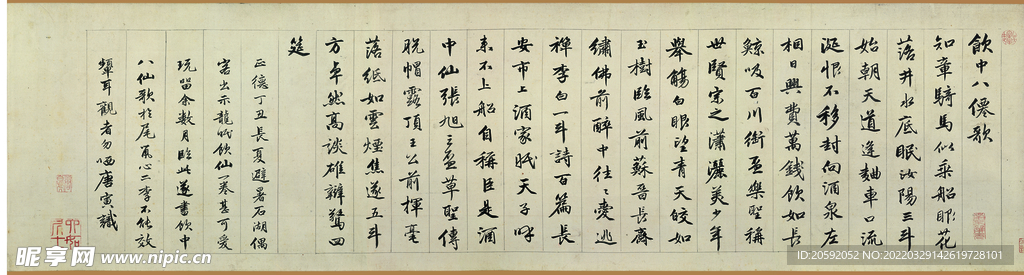 飲中八僊歌
知章騎馬似乘船眼花
落井水底眠汝陽三斗
始朝天道逢麯車口流
涎恨不移封向酒泉左
相日興費萬錢飲如長
鯨吸百川銜盃樂聖稱
世賢宗之瀟灑美少年
舉觴白眼望青天皎如
玉樹臨風前蘇晉長齋
繡佛前醉中往往愛逃
禪李白一斗詩百篇長
安市上酒家眠天子呼
來不上船自稱臣是酒
中仙張旭三盃草聖傳
脫帽露頂王公前揮毫
落紙如雲煙焦遂五斗
方卓然高談雄辯驚四
筵
正德丁丑長夏避暑石湖偶
客出示龍眠飲仙一卷甚可愛
玩留余數月臨此遂書飲中
八仙歌於尾風心二李不能效
顰耳觀者勿哂唐寅識
昵享网 www.nipic.cn
ID:20592052 NO:20220329142619728101